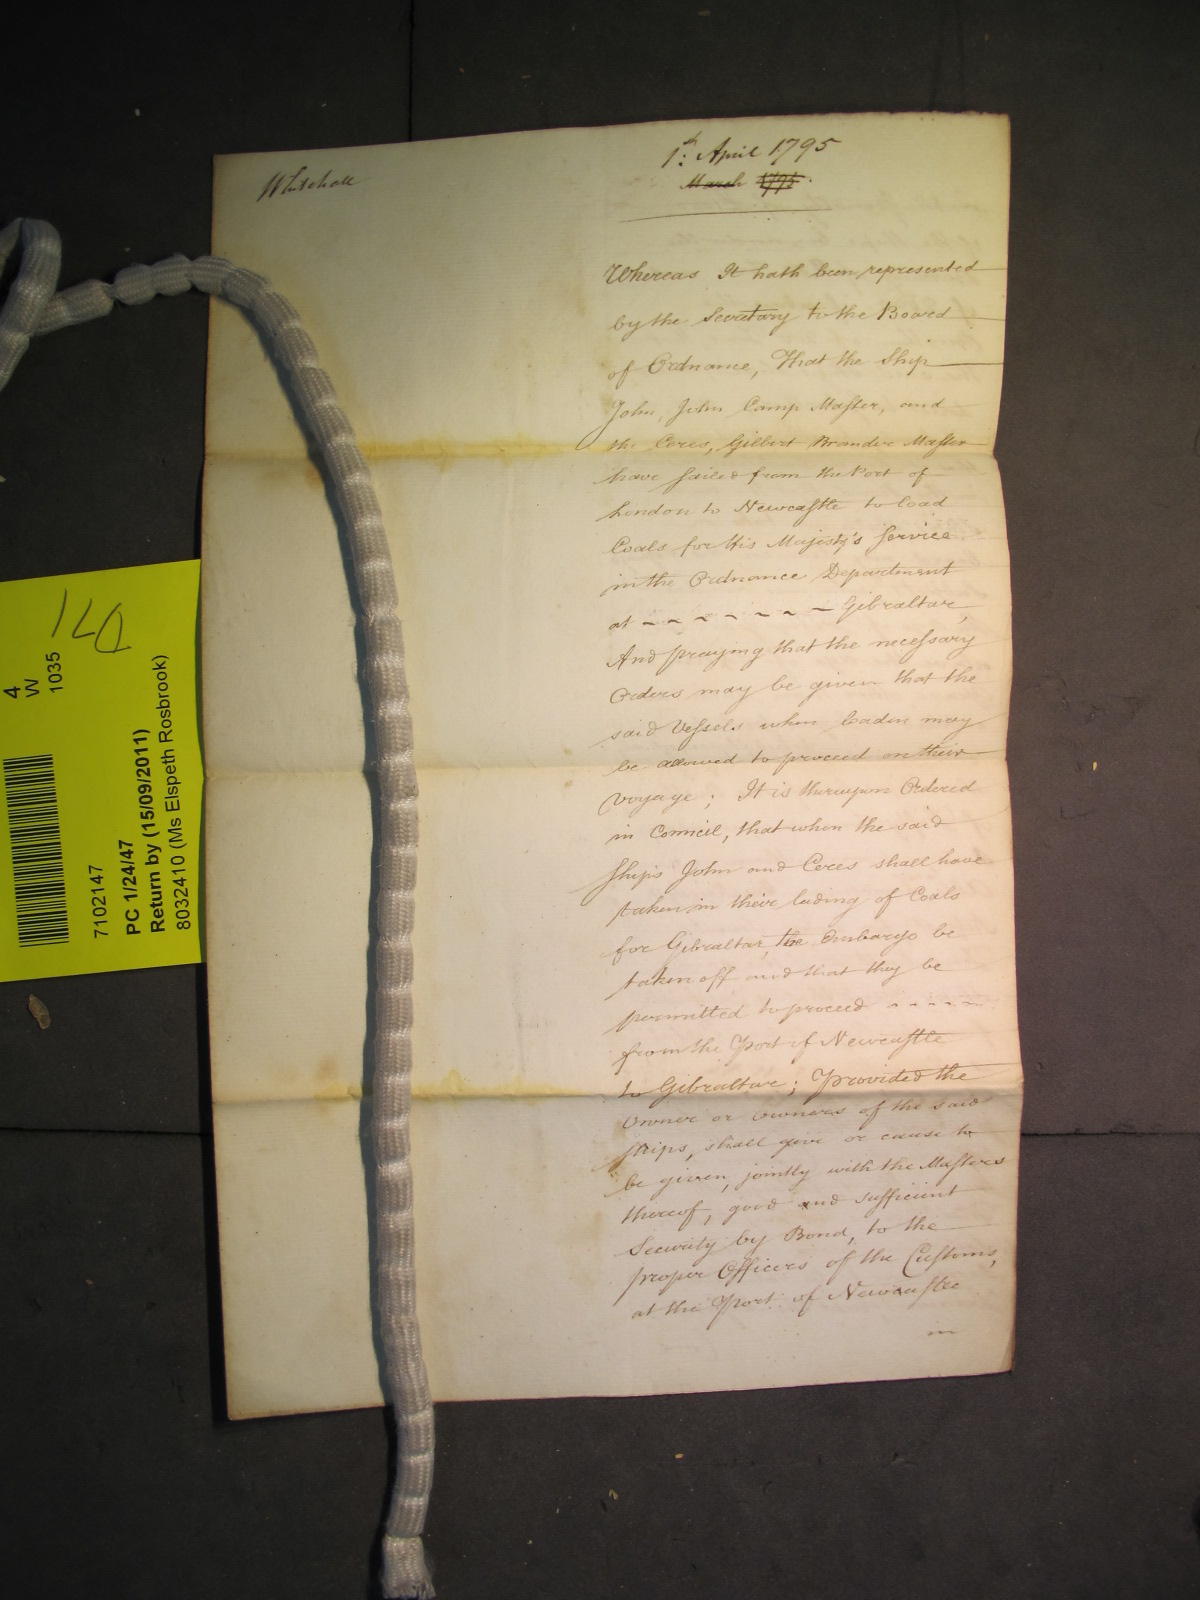 Whitehall
1st April 1795
March 1795
Whereas It hath been represented
by the Secretary to the Board
of Ordnance, That the Ship
John, John Camp Master, and
the Ceres, Gilbert Brander Master
have sailed from the Port of
London to Newcastle to load
Coals for His Majesty's Service
in the Ordnance Department
at ------ Gibraltar,
And praying that the necessary
Orders may be given that the
said Vessels when laden may
be allowed to proceed on their
Voyage; It is thereupon Ordered
in Council, that when the said
Ships John and Ceres shall have
taken in their lading of Coals
for Gibraltar, the Embargo be
taken off and that they be
permitted to proceed -----
from the Port of Newcastle
to Gibraltar; Provided the
Owner or Owners of the said
Ships, shall give or cause to
be given, jointly with the Masters
thereof, good and sufficient
Security by Bond, to the
proper Officers of the Customs,
at the Port of Newcastle
in
D71
4
W
1035
7102147
PC 1/24/47
Return by (15/09/2011)
8032410 (Ms Elspeth Rosbrook)